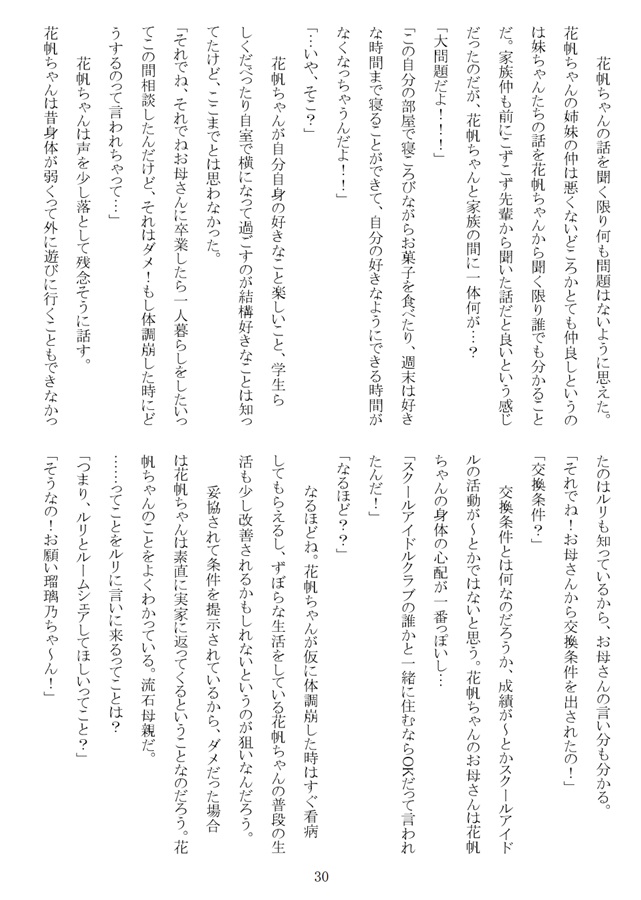 花帆ちゃんの話を聞く限り何も問題はないように思えた。
花帆ちゃんの姉妹の仲は悪くないどころかとても仲良しというの
は妹ちゃんたちの話を花帆ちゃんから聞く限り誰でも分かること
だ。家族仲も前にこずこず先輩から聞いた話だと良いという感じ
だったのだが、花帆ちゃんと家族の間に一体何が…？
「大問題だよ！！！」
「この自分の部屋で寝ころびながらお菓子を食べたり、週末は好き
な時間まで寝ることができて、自分の好きなようにできる時間が
なくなっちゃうんだよ！！」
「…いや、そこ？」
花帆ちゃんが自分自身の好きなこと楽しいこと、学生ら
しくだべったり自室で横になって過ごすのが結構好きなことは知っ
てたけど、ここまでとは思わなかった。
「それでね、それでねお母さんに卒業したら一人暮らしをしたいっ
てこの間相談したんだけど、それはダメ！もし体調崩した時にど
うするのって言われちゃって…」
花帆ちゃんは声を少し落として残念そうに話す。
花帆ちゃんは昔身体が弱くって外に遊びに行くこともできなかっ
たのはルリも知っているから、お母さんの言い分も分かる。
「それでね！お母さんから交換条件を出されたの！」
「交換条件？」
交換条件とは何なのだろうか、成績が～とかスクールアイド
ルの活動が～とかではないと思う。花帆ちゃんのお母さんは花帆
ちゃんの身体の心配が一番っぽいし…
「スクールアイドルクラブの誰かと一緒に住むならOKだって言われ
たんだ！」
「なるほど？？」
なるほどね。花帆ちゃんが仮に体調崩した時はすぐ看病
してもらえるし、ずぼらな生活をしている花帆ちゃんの普段の生
活も少し改善されるかもしれないというのが狙いなんだろう。
妥協されて条件を提示されているから、ダメだった場合
は花帆ちゃんは素直に実家に返ってくるということなのだろう。花
帆ちゃんのことをよくわかっている。流石母親だ。
……ってことをルリに言いに来るってことは？
「つまり、ルリとルームシェアしてほしいってこと？」
「そうなの！お願い瑠璃乃ちゃ～ん！」
30